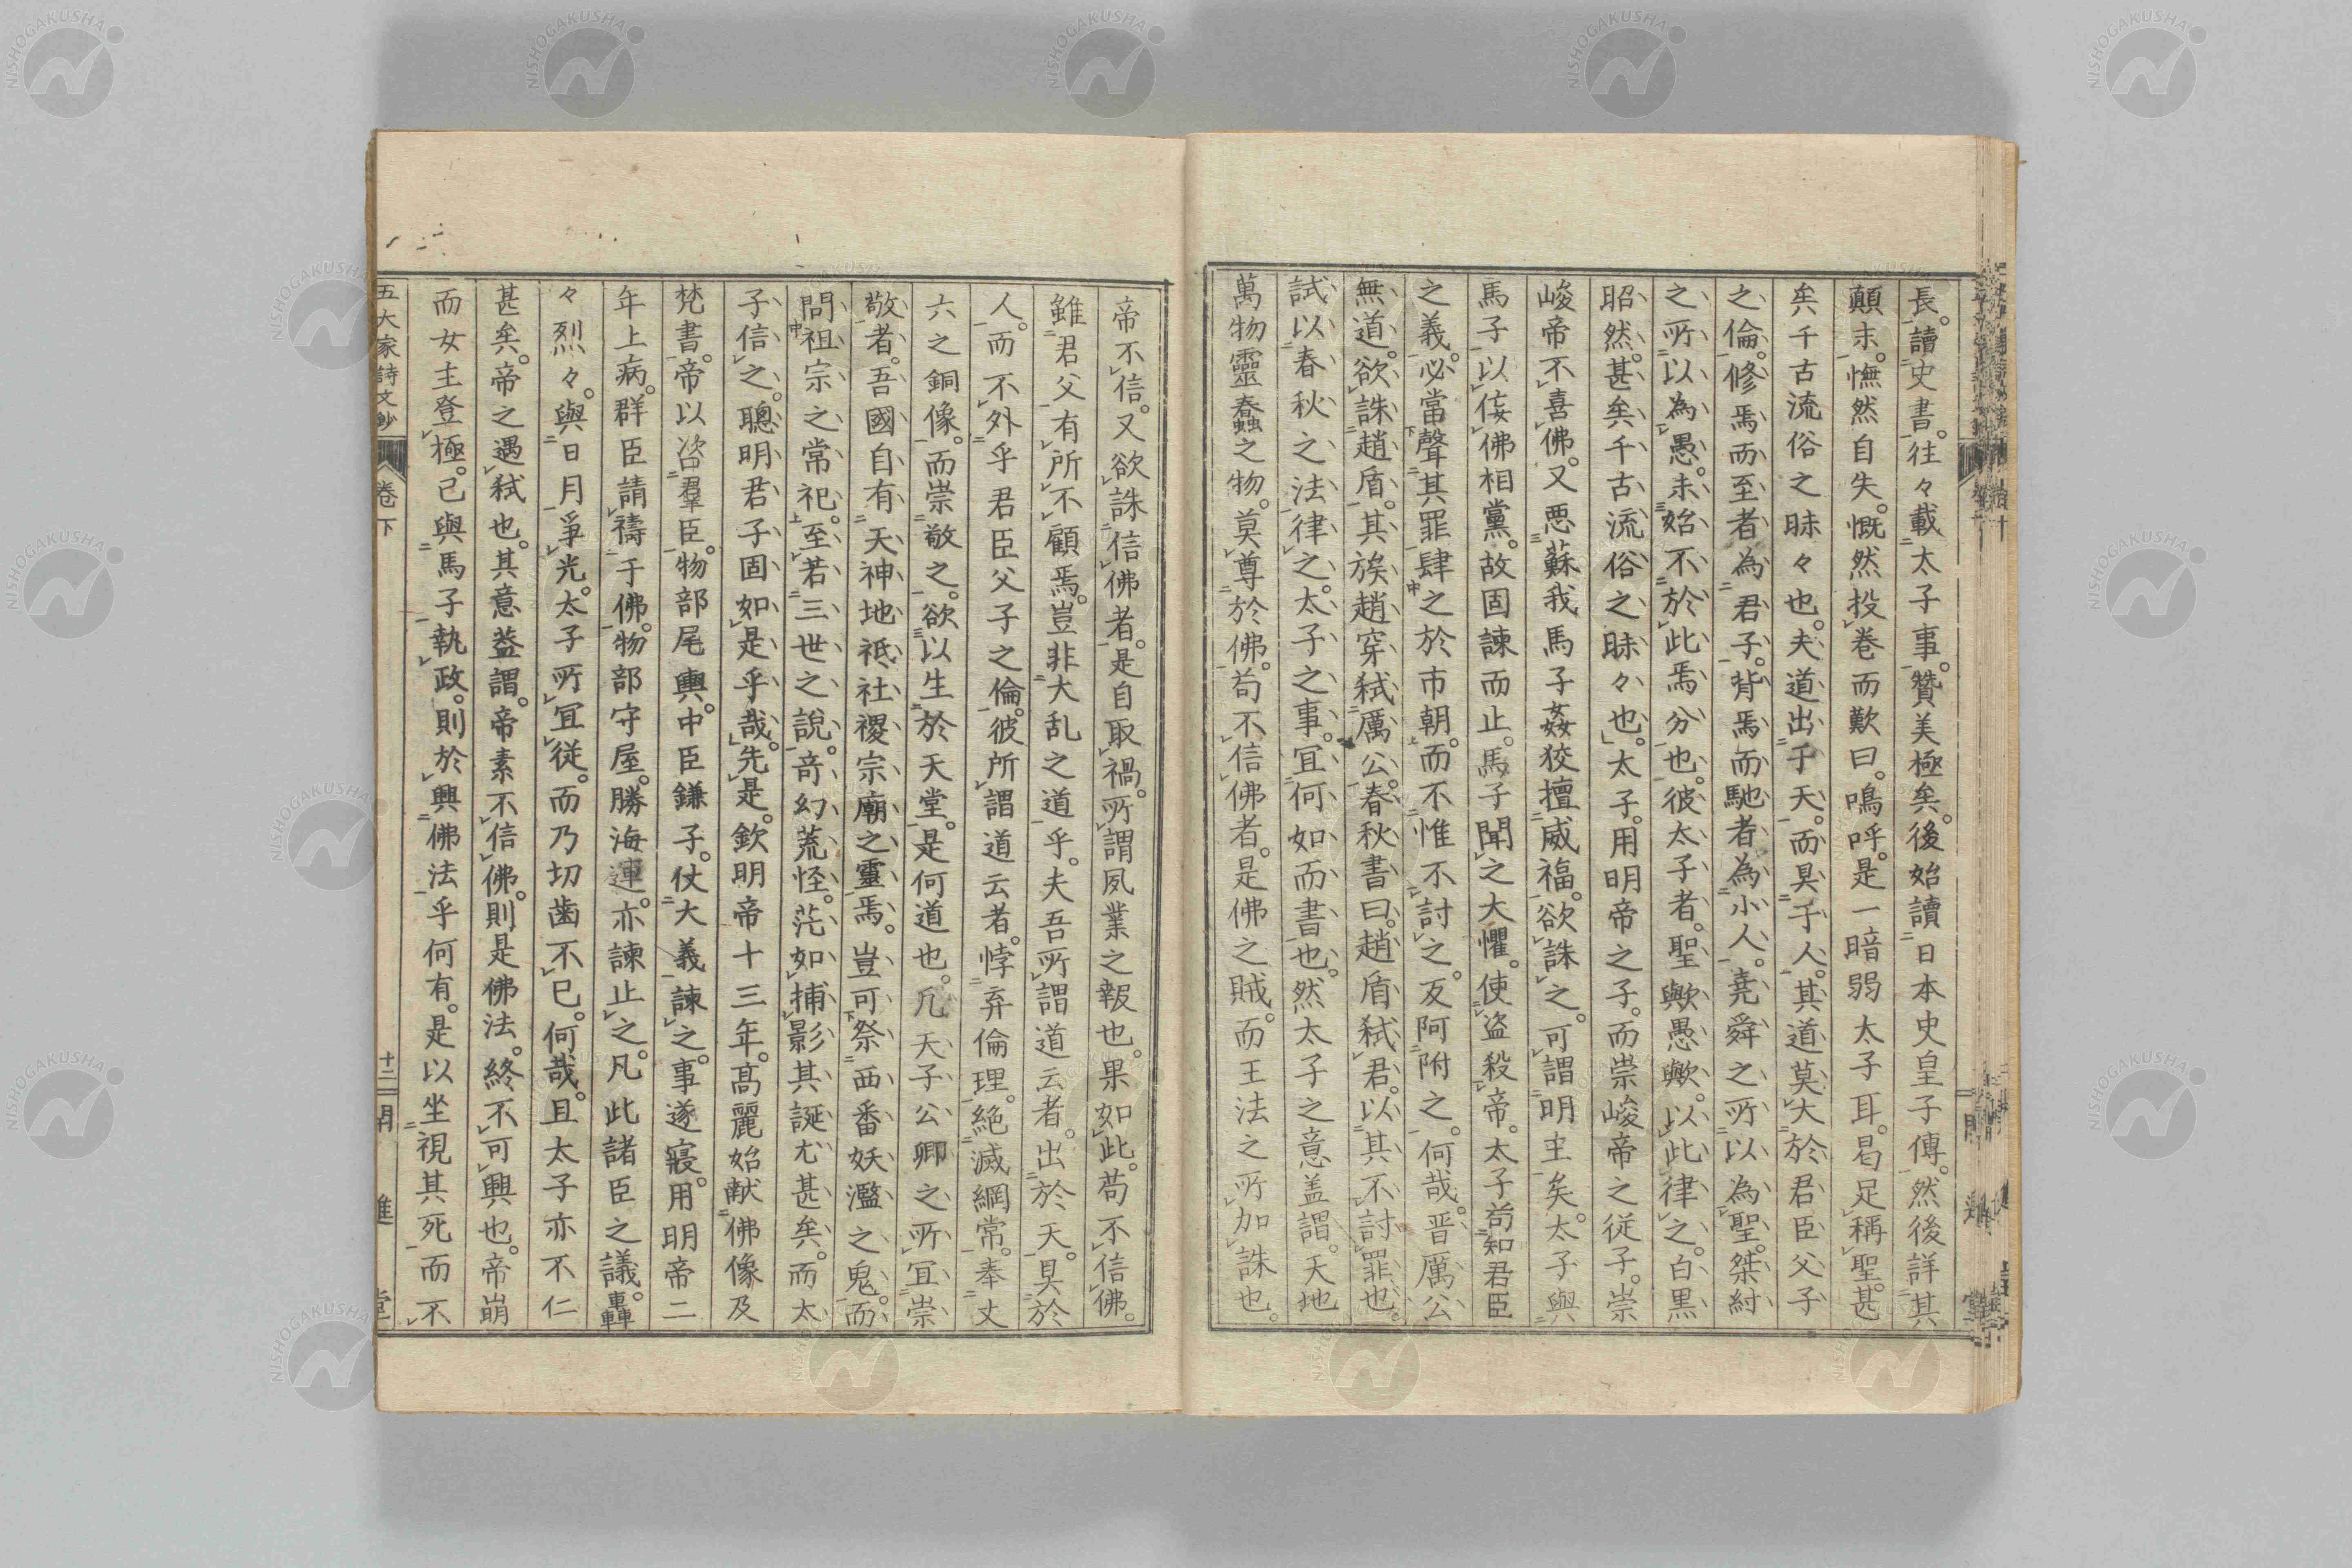 長。讀史書。往々載太子事。贊美極矣。後始讀日本史皇子傳。然後詳其
顛末。憮然自失。慨然投卷而歎曰。嗚呼。是一暗弱太子耳。曷足稱聖。甚
矣千古流俗之昧々也。夫道出于天。而具于人。其道莫大於君臣父子
之倫。修焉而至者為君子。背焉而馳者為小人。堯舜之所以為聖。桀紂
之所以為愚。未始不於此焉分也。彼太子者。聖歟愚歟。以此律之。白黒
昭然。甚矣千古流俗之昧々也。太子。用明帝之子。而崇峻帝之從子。崇
峻帝不喜佛。又悪蘇我馬子姦狡擅威福。欲誅之。可謂明主矣。太子與
馬子以佞佛相黨。故固諫而止。馬子聞之大懼。使盗殺帝。太子苟知君臣
之義。必當聲其罪肆之於市朝。而不惟不討之。反阿附之。何哉。晋厲公
無道。欲誅趙盾。其族趙穿弒厲公。春秋書曰。趙盾弒君。以其不討罪也。
試以春秋之法律之。太子之事。宜何如而書也。然太子之意盖謂。天地
萬物靈蠢之物。莫尊於佛。苟不信佛者。是佛之賊。而王法之所加誅也。
帝不信。又欲誅信佛者。是自取禍。所謂夙業之報也。果如此。苟不信佛。
雖君父有所不顧焉。豈非大乱之道乎。夫吾所謂道云者。出於天。具於
人。而不外乎君臣父子之倫。彼所謂道云者。悖弃倫理。絶滅綱常。奉丈
六之銅像。而崇敬之。欲以生於天堂。是何道也。凡天子公卿之所宜崇
敬者。吾國自有天神地祗社稷宗廟之靈焉。豈可祭西番妖濫之鬼。而
問祖宗之常祀。至若三世之說。竒幻荒怪。茫如捕影其誕尤甚矣。而太
子信之。聰明君子固如是乎哉。先是。欽明帝十三年。髙麗始献佛像及
梵書。帝以咨群臣。物部尾輿。中臣鎌子。仗大義諫之。事遂寢。用明帝二
年上病。群臣請禱于佛。物部守屋。勝海連。亦諫止之。凡此諸臣之議。轟
々烈々。與日月爭光。太子所宜從。而乃切歯不已。何哉。且太子亦不仁
甚矣。帝之遇弒也。其意葢謂。帝素不信佛。則是佛法。終不可興也。帝崩
而女主登極。己與馬子執政。則於興佛法乎何有。是以坐視其死而不
五大家詩文鈔 卷下 十二 開進堂